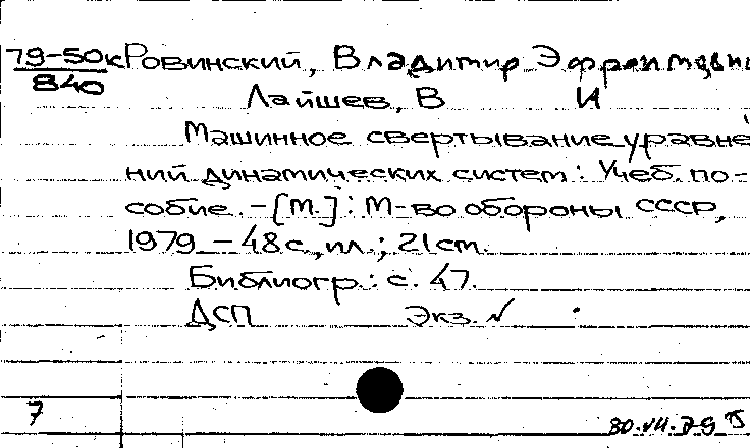 79-50к Ровинский, Владимир Эфраимович
840
Лайшев, В И
Машинное свертывание уравне
ний динамических систем: Учеб. по-
собие. - [М.]: М-во обороны СССР,
1979 - 48 с., ил.; 21 см.
Библиогр.: с. 47.
ДСП Экз. №
7
30.VII.79